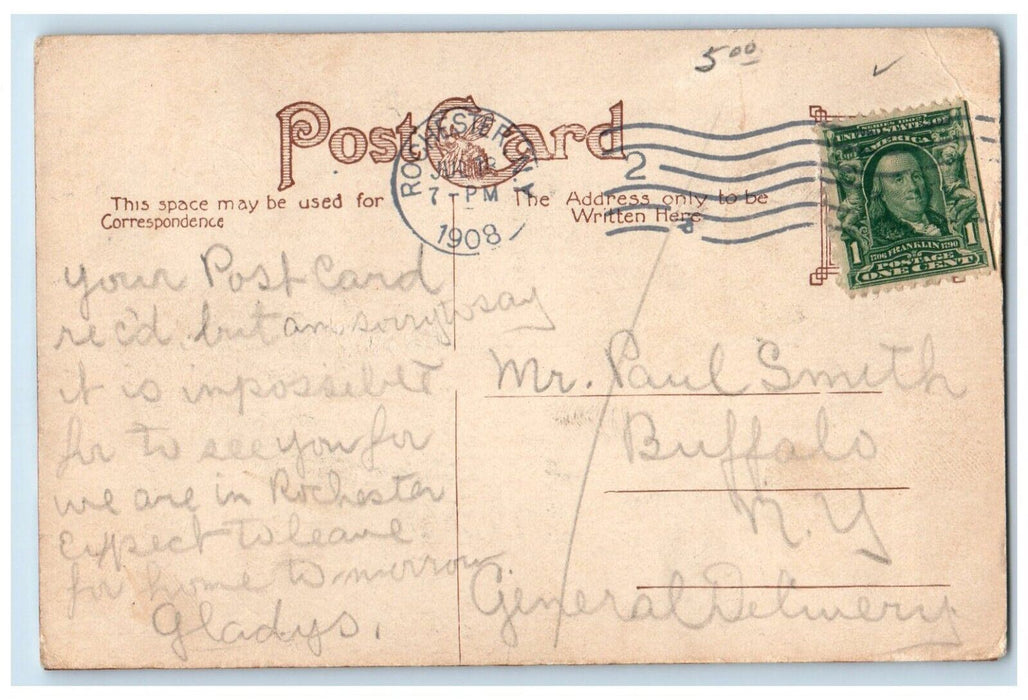 5.00
Post Card
This space may be used for
Correspondence
The Address only to be
Written Here
ROCHESTER, N.Y.
7-PM
1908
2
SERIES 1902
UNITED STATES OF
AMERICA
1706 FRANKLIN 1790
1 1
POSTAGE
ONE CENT
your Post Card
rec'd. but am sorry to say
it is impossible
for to see you for
we are in Rochester
expect to leave
for home to-morrow.
Gladys.
Mr. Paul Smith
Buffalo
N.Y
General Delivery